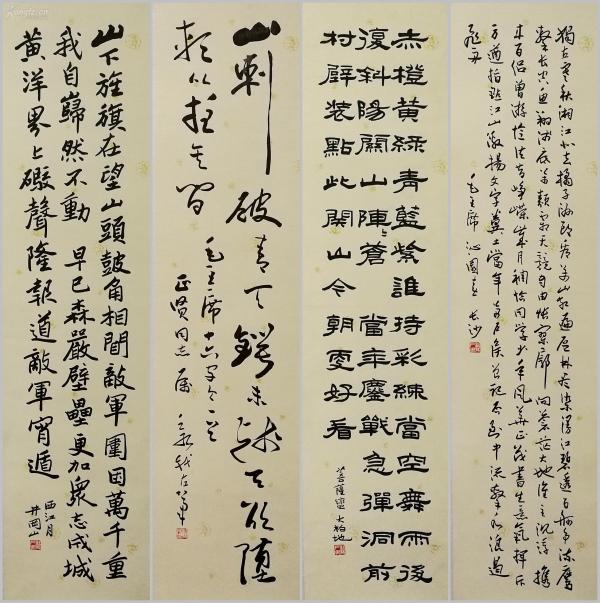 獨立寒秋湘江北去橘子洲頭看萬山紅遍層林盡染漫江碧透百舸爭流鷹
擊長空魚翔淺底萬類霜天競自由悵寥廓問蒼茫大地誰主沉浮攜
來百侶曾游憶往昔崢嶸歲月稠恰同學少年風華正茂書生意氣揮斥
方遒指點江山激揚文字糞土當年萬戶侯曾記否到中流擊水浪遏
飛舟
毛主席 沁園春 長沙
赤橙黃綠青藍紫誰持彩練當空舞雨後
復斜陽關山陣〻蒼 當年鏖戰急彈洞前
村壁裝點此關山今朝更好看
菩薩蠻 大柏地
山刺破青天鍔未殘天欲墮
賴以拄其間
毛主席十六字令一首
正賢同志屬
山下旌旗在望山頭鼓角相聞敵軍圍困萬千重
我自巋然不動 早已森嚴壁壘更加眾志成城
黃洋界上礮聲隆報道敵軍宵遁
西江月
井岡山